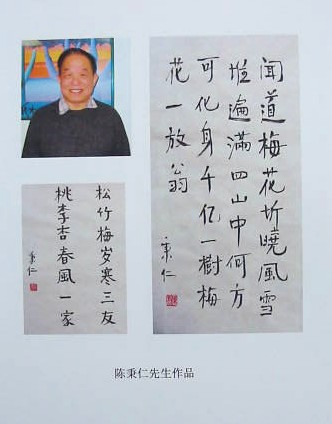 闻道梅花坼曉風雪
堆遍滿四山中何方
可化身千亿一樹梅
花一放翁
秉仁
松竹梅岁寒三友
桃李杏春風一家
秉仁
陈秉仁先生作品